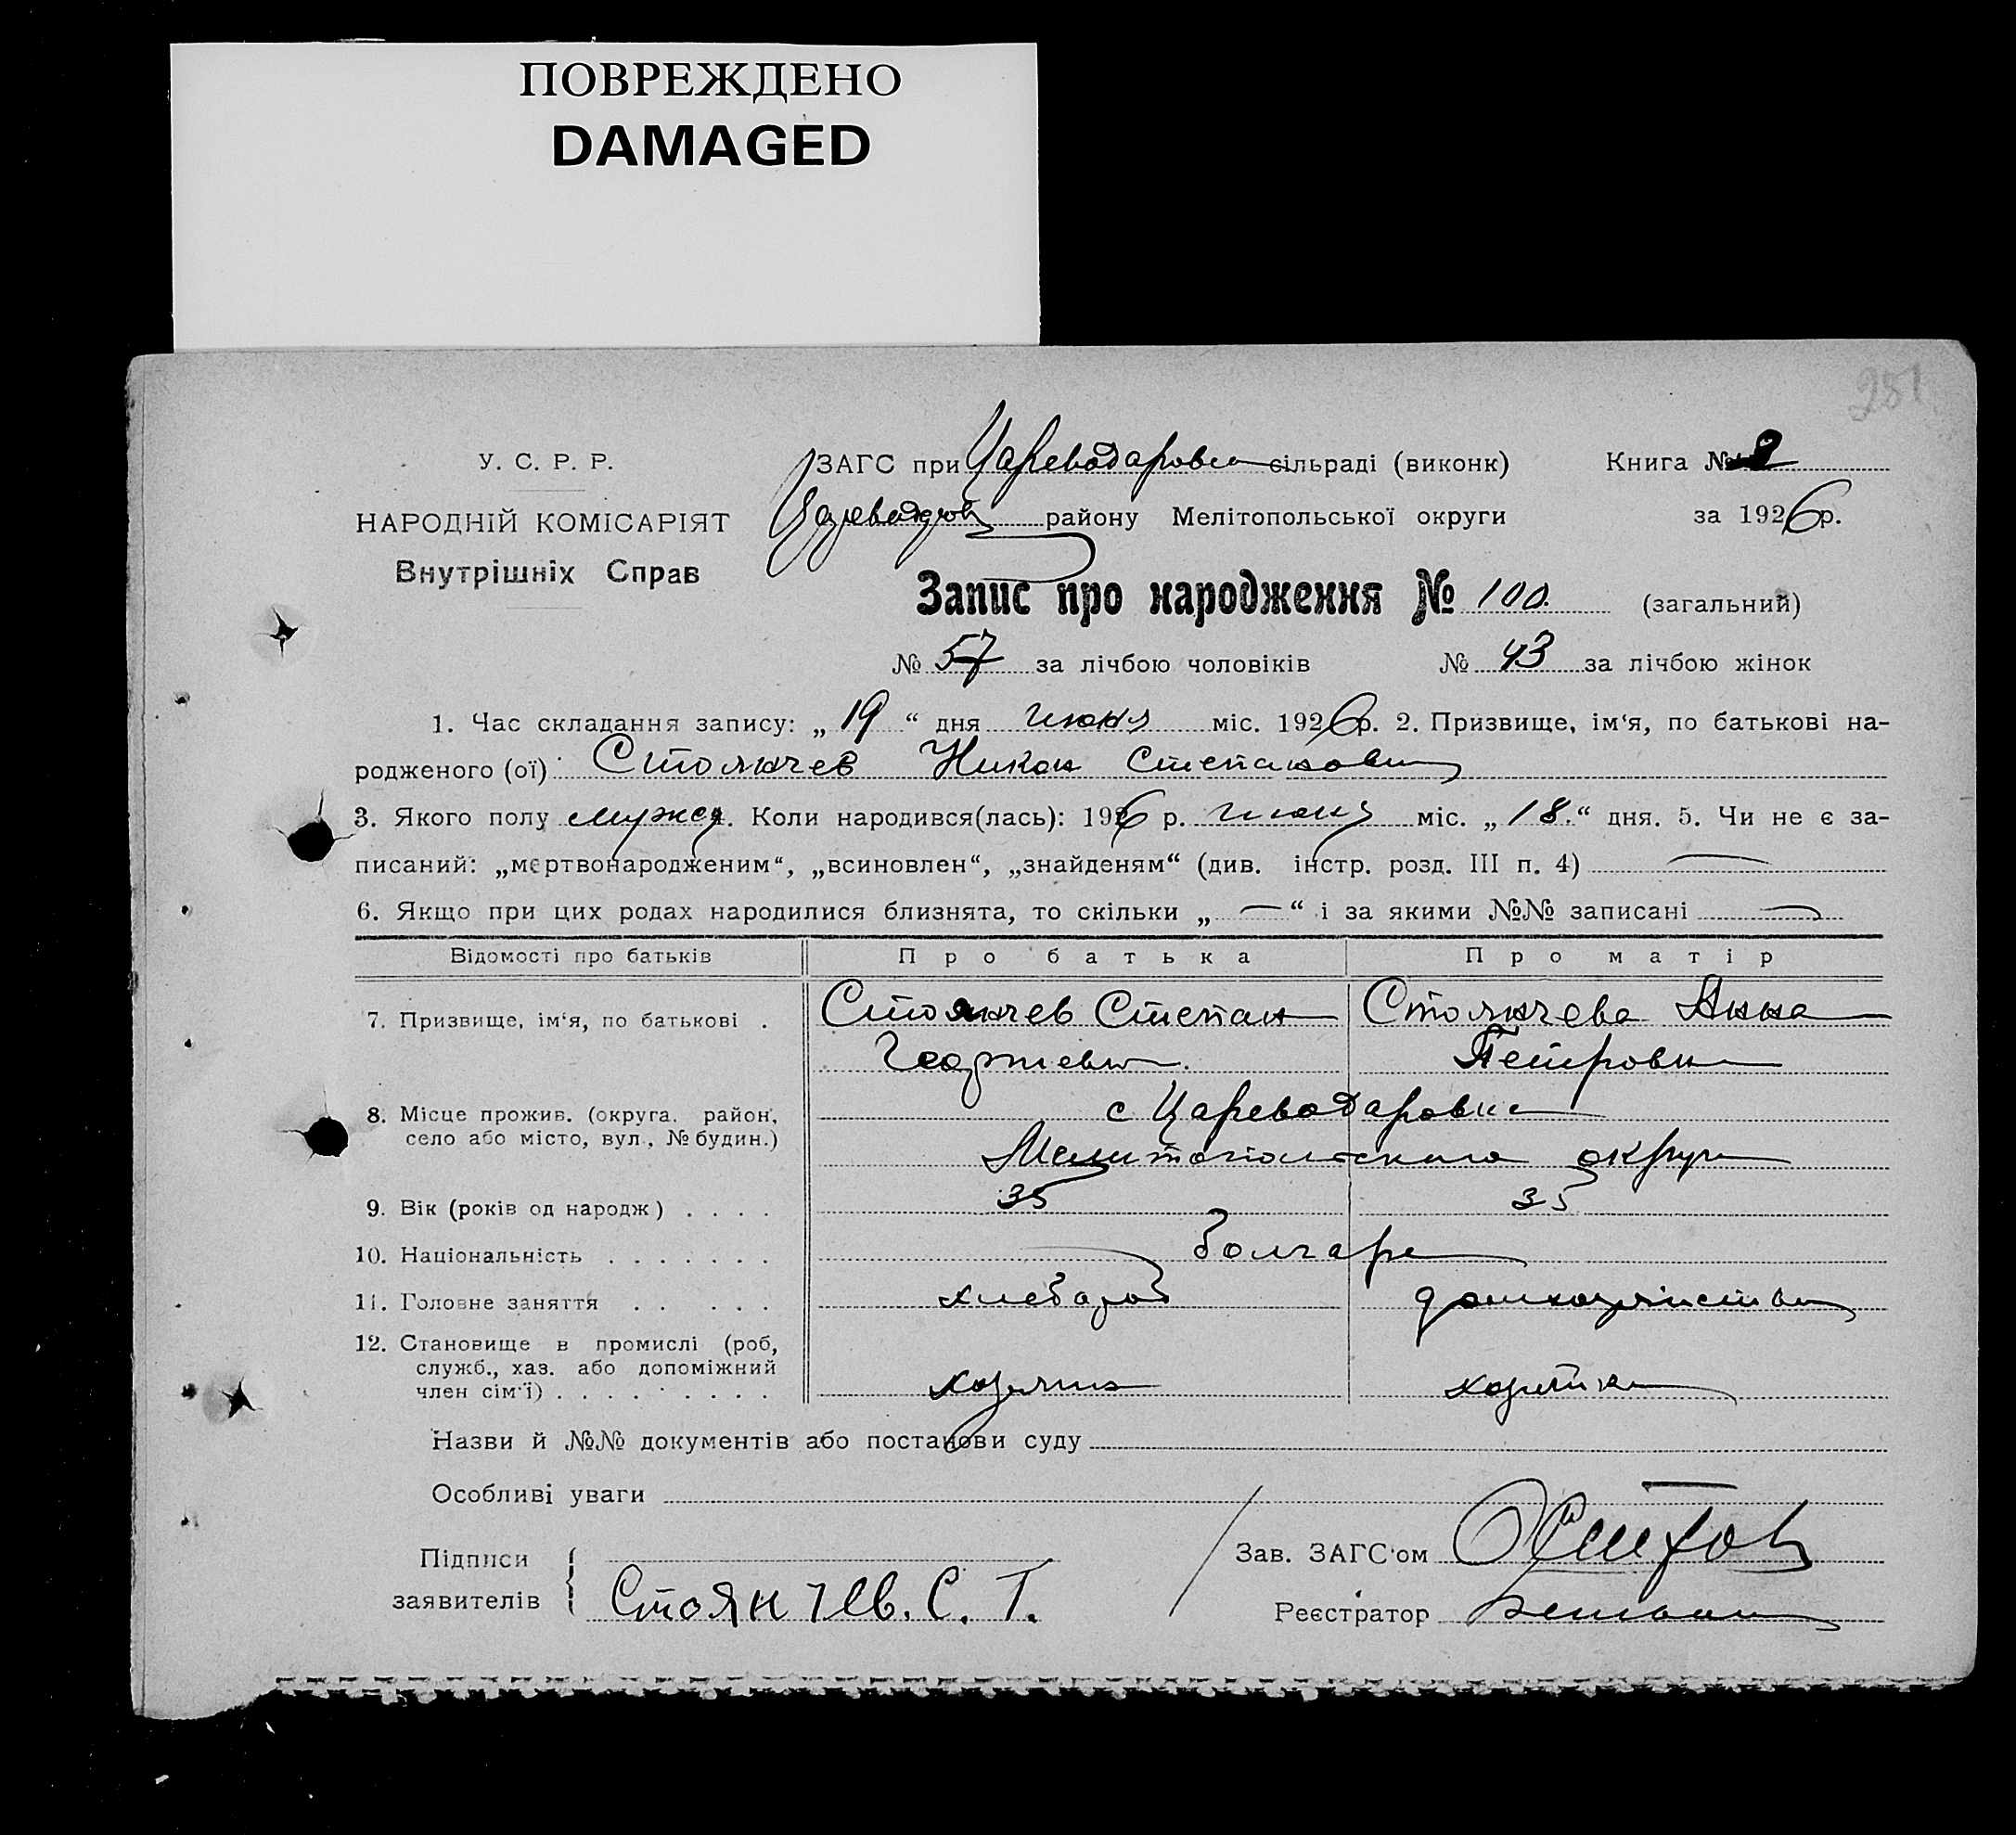 ПОВРЕЖДЕНО
DAMAGED
281
У. С. Р. Р.
НАРОДНІЙ КОМІСАРІЯТ
Внутрішніх Справ
ЗАГС при Цареводаровк сільраді (виконк) Книга № 2
району Мелітопольської округи за 1926 р.
Запис про народження № 100. (загальний)
№ 57 за лічбою чоловіків № 43 за лічбою жінок
1. Час складання запису: „ 19 “ дня июня міс. 1926 р. 2. Призвище, ім‘я, по батькові на-
родженого (ої) Стоянчев Никон Степанович
3. Якого полу мужс. Коли народився(лась): 1926 р. июня міс. „ 18. “ дня. 5. Чи не є за-
писаний: „мертвонародженим“, „всиновлен“, „знайденям“ (див. інстр. розд. III п. 4) —
6. Якщо при цих родах народилися близнята, то скільки „ — “ і за якими №№ записані —
Відомості про батьків Про батька Про матір
7. Призвище, ім‘я, по батькові . Стоянчев Степан Стоянчева Анна
Георгиевич. Петровна
8. Місце прожив. (округа, район, с Цареводаровка
село або місто, вул., № будин.)
Мелитопольского округа
9. Вік (років од народж) . . . . 35 35
10. Національність . . . . . . . болгаре
11. Головне заняття . . . . . хлебороб домохозяйство
12. Становище в промислі (роб,
служб., хаз. або допоміжний
член сім‘ї) . . . . . . . . . хозяин хозяйка
Назви й №№ документів або постанови суду
Особливі уваги
Підписи
заявителів
Стоянчев. С. Г.
Зав. ЗАГС‘ом
Реєстратор